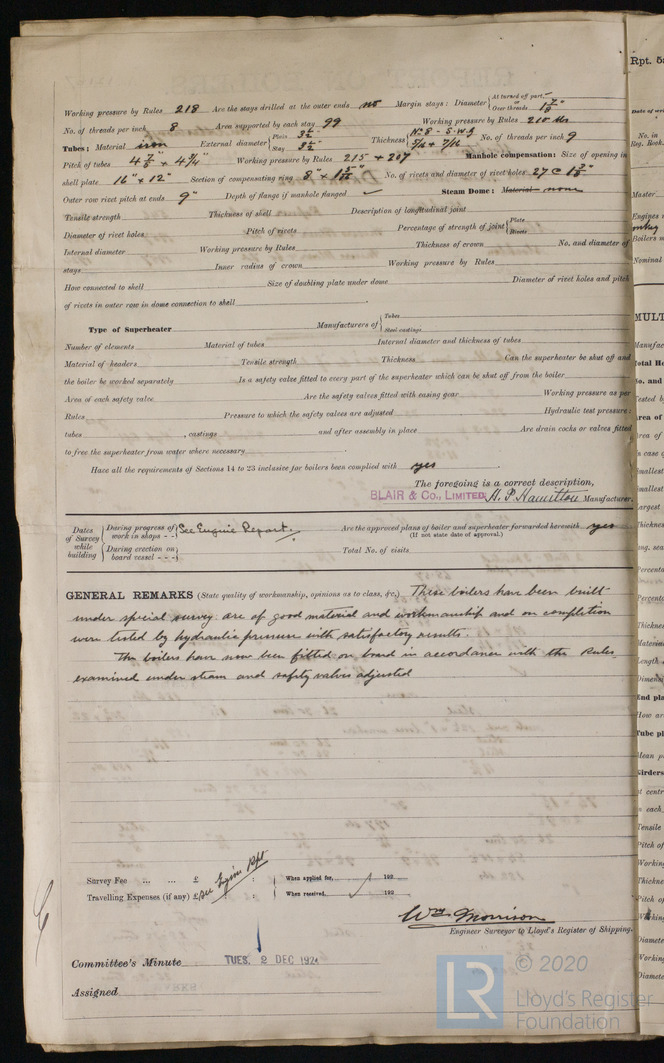 Working pressure by Rules 218 Are the stays drilled at the outer ends no Margin stays: Diameter { At turned off part, or Over threads 1 7/8"
No. of threads per inch 8 Area supported by each stay 99 Working pressure by Rules 210 lbs
Tubes: Material iron External diameter { Plain 3½ Stay 3½" Thickness { No 8 - S.W.G 5/16 & 7/16 No. of threads per inch 9
Pitch of tubes 4 7/8" & 4 3/4" Working pressure by Rules 215 & 207 Manhole compensation: Size of opening in
shell plate 16" & 12" Section of compensating ring No. of rivets and diameter of rivet holes
Outer row rivet pitch at ends 9" Depth of flange if manhole flanged Steam Dome: Material none
Tensile strength Thickness of shell Description of longitudinal joint
Diameter of rivet holes Pitch of rivets Percentage of strength of joint { Plate Rivets
Internal diameter Working pressure by Rules Thickness of crown No. and diameter of
stays Inner radius of crown Working pressure by Rules
How connected to shell Size of doubling plate under dome Diameter of rivet holes and pitch
of rivets in outer row in dome connection to shell
Type of Superheater Manufacturers of { Tubes Steel castings
Number of elements Material of tubes Internal diameter and thickness of tubes
Material of headers Tensile strength Thickness Can the superheater be shut off and
the boiler be worked separately Is a safety valve fitted to every part of the superheater which can be shut off from the boiler
Area of each safety valve Are the safety valves fitted with easing gear Working pressure as per
Rules Pressure to which the safety valves are adjusted Hydraulic test pressure:
tubes , castings and after assembly in place Are drain cocks or valves fitted
to free the superheater from water where necessary
Have all the requirements of Sections 14 to 23 inclusive for boilers been complied with yes
The foregoing is a correct description,
BLAIR & Co., LIMITED. H. P. Hamilton Manufacturer.
Dates of Survey while building { During progress of work in shops - - See Engine Report. Are the approved plans of boiler and superheater forwarded herewith yes
(If not state date of approval.)
{ During erection on board vessel - - - Total No. of visits
GENERAL REMARKS (State quality of workmanship, opinions as to class, &c.) These boilers have been built
under special survey are of good material and workmanship and on completion
were tested by hydraulic pressure with satisfactory results.
The boilers have now been fitted on board in accordance with the Rules
examined under steam and safety valves adjusted
Survey Fee ... ... £ : : When applied for, 192
Travelling Expenses (if any) £ : : When received, 192
see Engine Rpt
Wm Morrison
Engineer Surveyor to Lloyd's Register of Shipping.
Committee's Minute TUES. 2 DEC 1924
Assigned
Rpt. 5a
LR © 2020
Lloyd's Register
Foundation